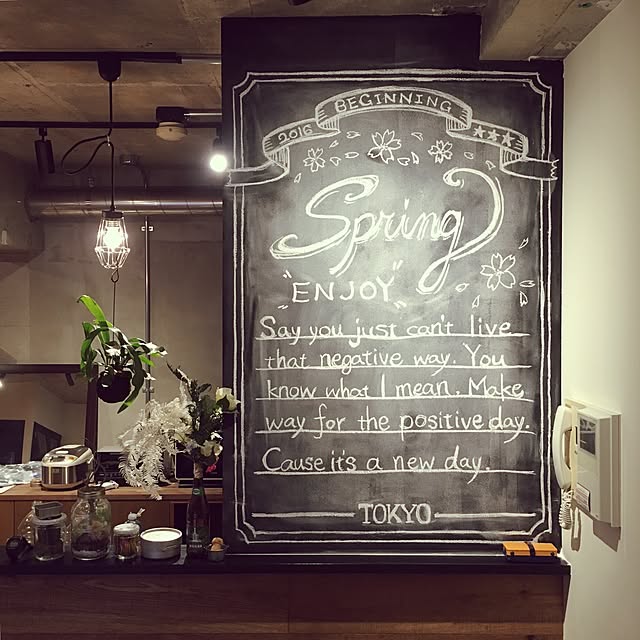 2016 BEGINNING ★★★
Spring
"ENJOY"
Say you just can't live
that negative way. You
know what I mean. Make
way for the positive day.
Cause it's a new day.
TOKYO